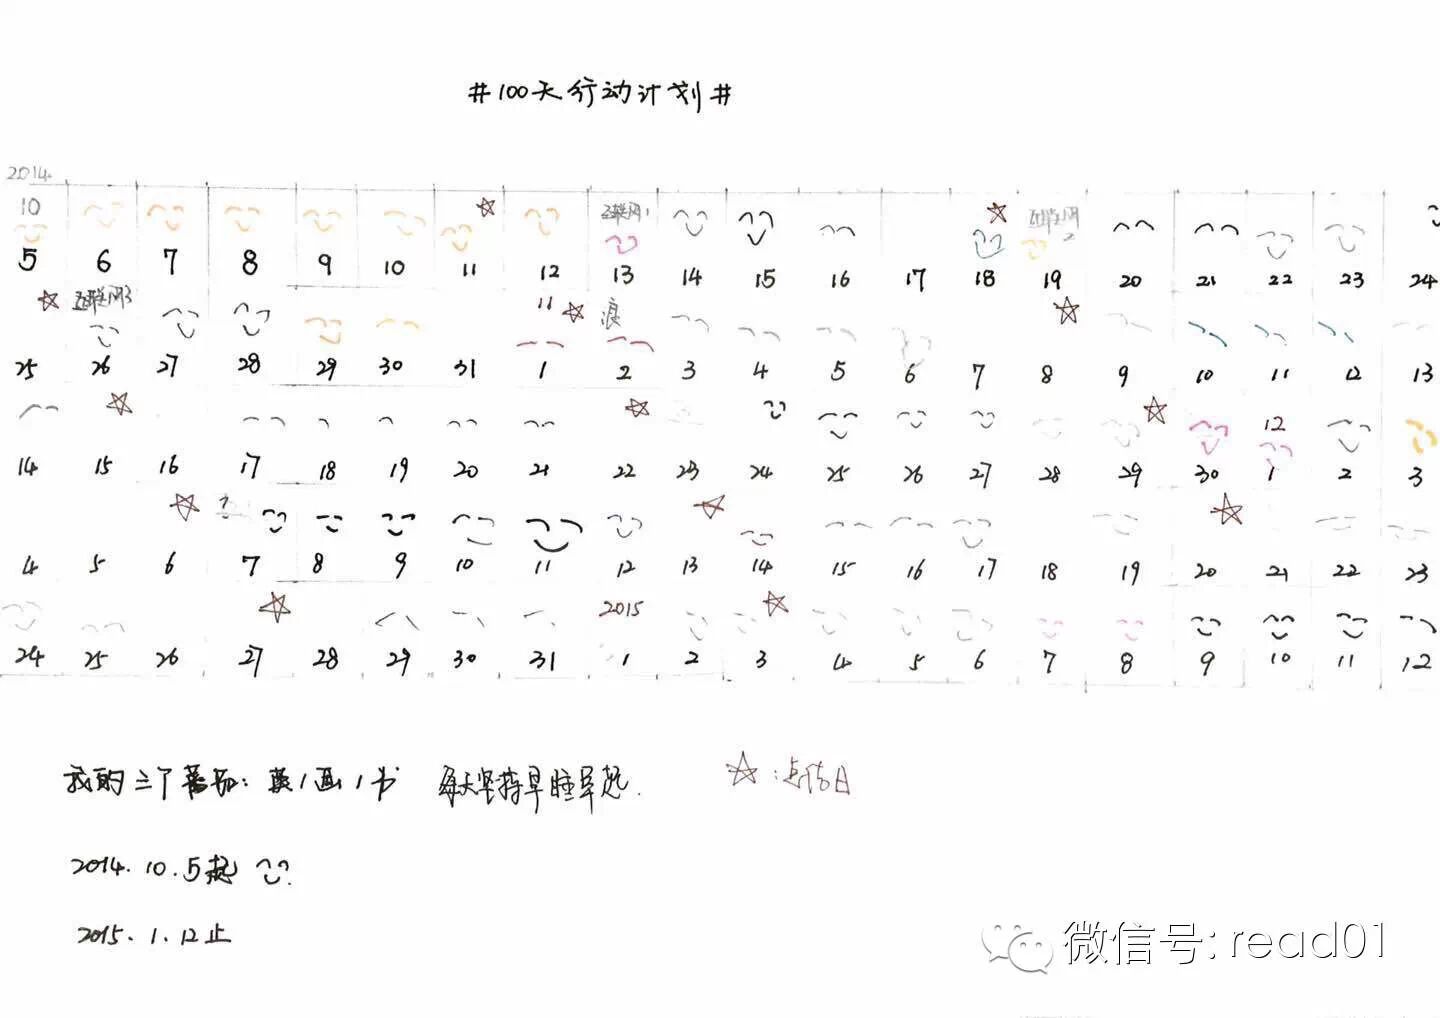 #100天行动计划#
2014.
10
5 6 7 8 9 10 11 12 13 14 15 16 17 18 19 20 21 22 23 24
互联网1
互联网2
互联网3
11
浪
25 26 27 28 29 30 31 1 2 3 4 5 6 7 8 9 10 11 12 13
12
14 15 16 17 18 19 20 21 22 23 24 25 26 27 28 29 30 1 2 3
?
4 5 6 7 8 9 10 11 12 13 14 15 16 17 18 19 20 21 22 23
2015
24 25 26 27 28 29 30 31 1 2 3 4 5 6 7 8 9 10 11 12
我的三个番茄: 英1画1书 每天坚持早睡早起. ☆:点待日
2014.10.5起
2015.1.12止
微信号: read01